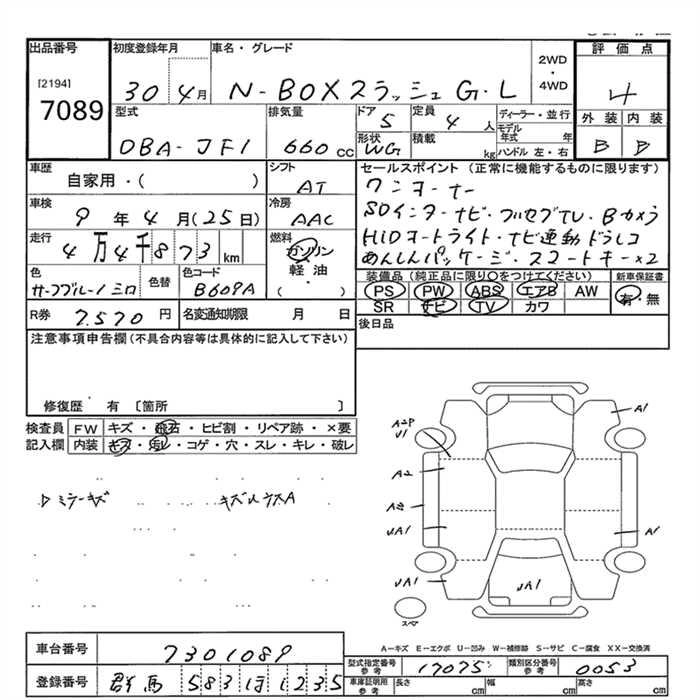 出品番号 初度登録年月 車名・グレード 評価点
[2194]
7089
30 4月 N-BOXスラッシュ G・L 2WD・4WD 4
型式 排気量 ドア 5 定員 4人 ディーラー・並行 外装 内装
DBA-JF1 660cc 形状 WG 積載 kg モデル年式 年 B B
ハンドル 左・右
車歴 シフト セールスポイント(正常に機能するものに限ります)
自家用・( ) AT ワンオーナー
車検 冷房 SDインターナビ・フルセグTV・Bカメラ
9年4月(25日) AAC HiDオートライト・ナビ連動ドラレコ
走行 燃料 あんしんパッケージ・スマートキー×2
4万4千873km ガソリン
軽油
( )
色 色替 色コード 装備品(純正品に限り○をつけてください) 新車保証書
B609A PS PW ABS エアB AW 有・無
SR ナビ TV カワ
R券 7,570円 名変通知期限 月 日 後日品
注意事項申告欄(不具合内容等は具体的に記入して下さい)
修復歴 有 〔箇所 〕
検査員記入欄 FW キズ・飛石・ヒビ割・リペア跡・×要
内装 キズ・汚レ・コゲ・穴・スレ・キレ・破レ
A1
U1
A2
A2
UA1 A1
UA1 UA1
スペア
A-キズ E-エクボ U-凹み W-補修跡 S-サビ C-腐食 XX-交換済
車台番号 7301089
登録番号 群馬 583 ほ 1235
型式指定番号 参考 17075 類別区分番号 参考 0053
車庫証明用 参考 長さ cm 幅 cm 高さ cm